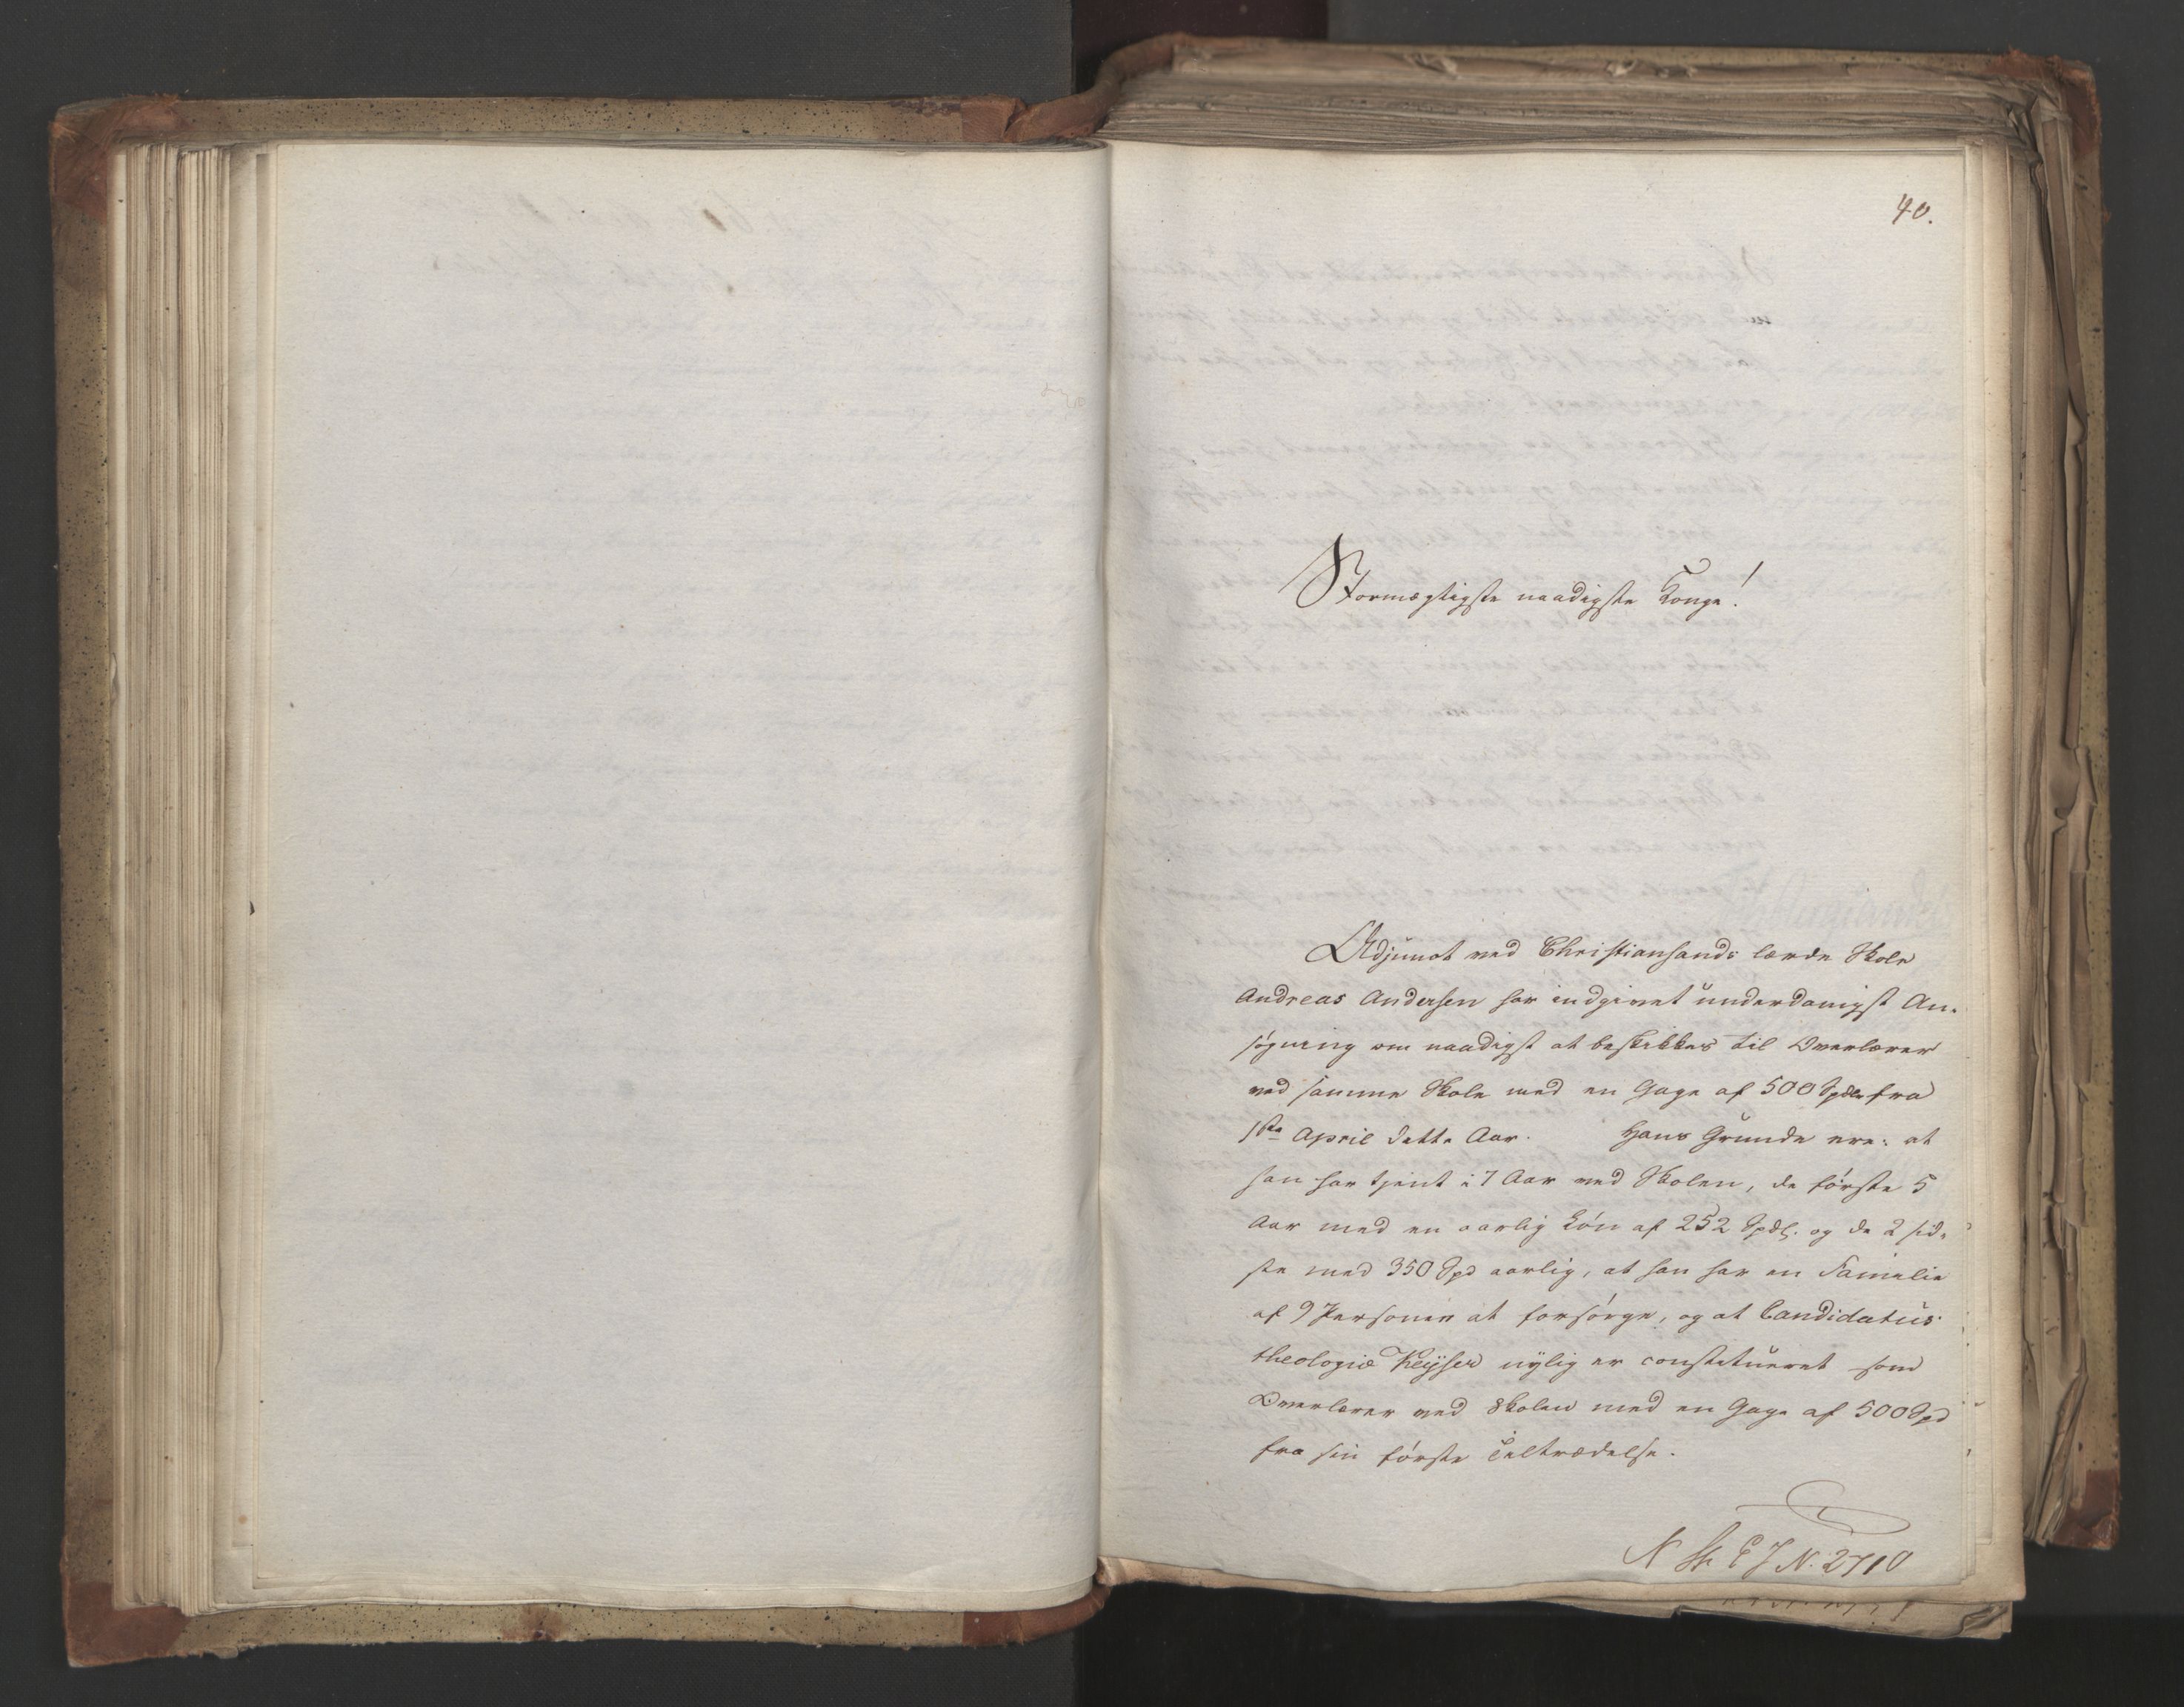 40.
Stormægtigste naadigste Konge!
Adjunct ved Christiansands lærde Skole
Andreas Andersen har indgivet underdanigst An-
søgning om naadigst at beskikkes til Overlærer
ved samme Skole med en Gage af 500 Spdlr fra
1ste April dette Aar. Hans Grunde ere: at
han har tjent i 7 Aar ved Skolen, de første 5
Aar med en aarlig Løn af 252 Spdl. og de 2 sid-
ste med 350 Spd aarlig, at han har en Familie
af 9 Personer at forsørge, og at Candidatus
theologiæ Keyser nylig er constitueret som
Overlærer ved Skolen med en Gage af 500 Spd
fra sin første Tiltrædelse.
N St E J N. 2710